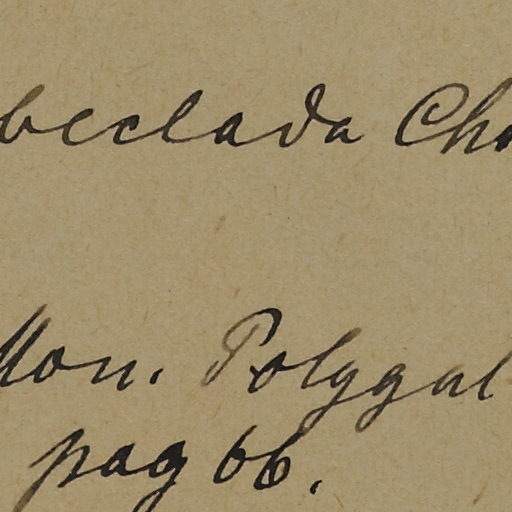 beclada Cho
Mon. Polygal
pag 66.